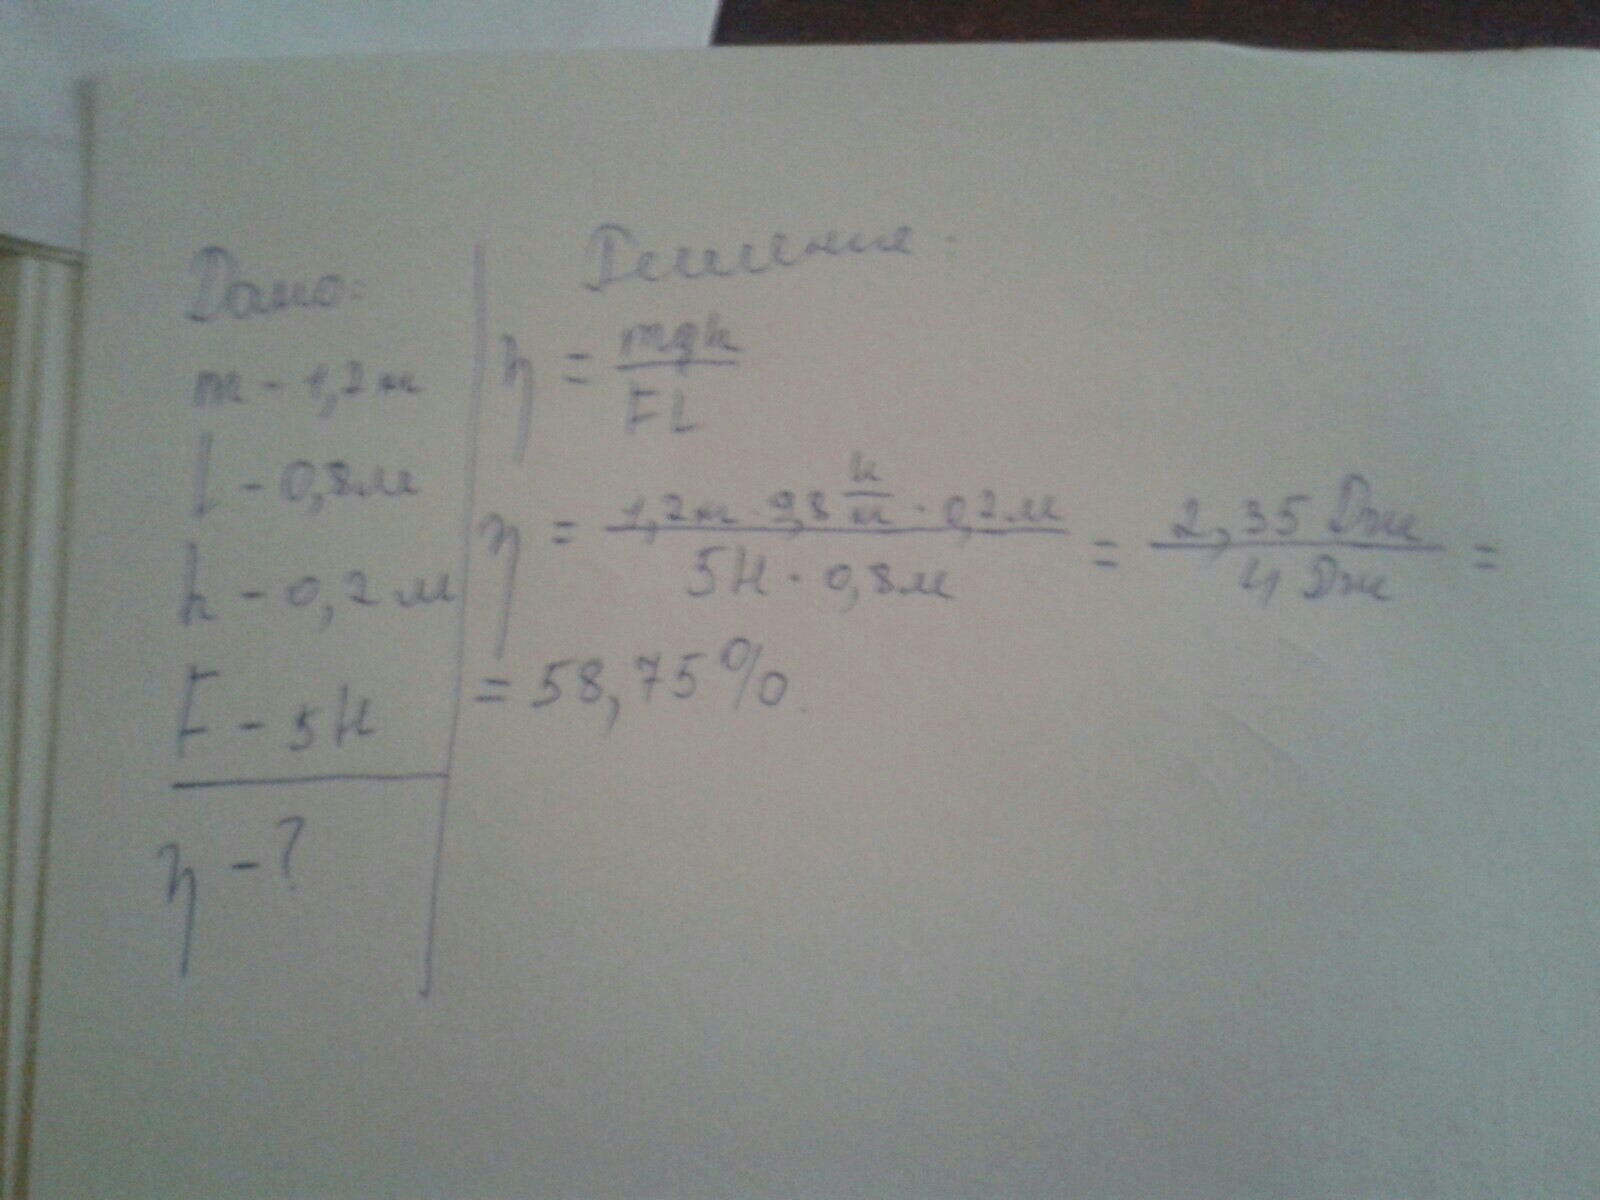 Дано:
m - 1,2 кг
l - 0,8 м
h - 0,2 м
F - 5 Н
η - ?
Решение:
η = mgh / FL
η = 1,2 кг · 9,8 Н/кг · 0,2 м / 5 Н · 0,8 м = 2,35 Дж / 4 Дж =
= 58,75 %.